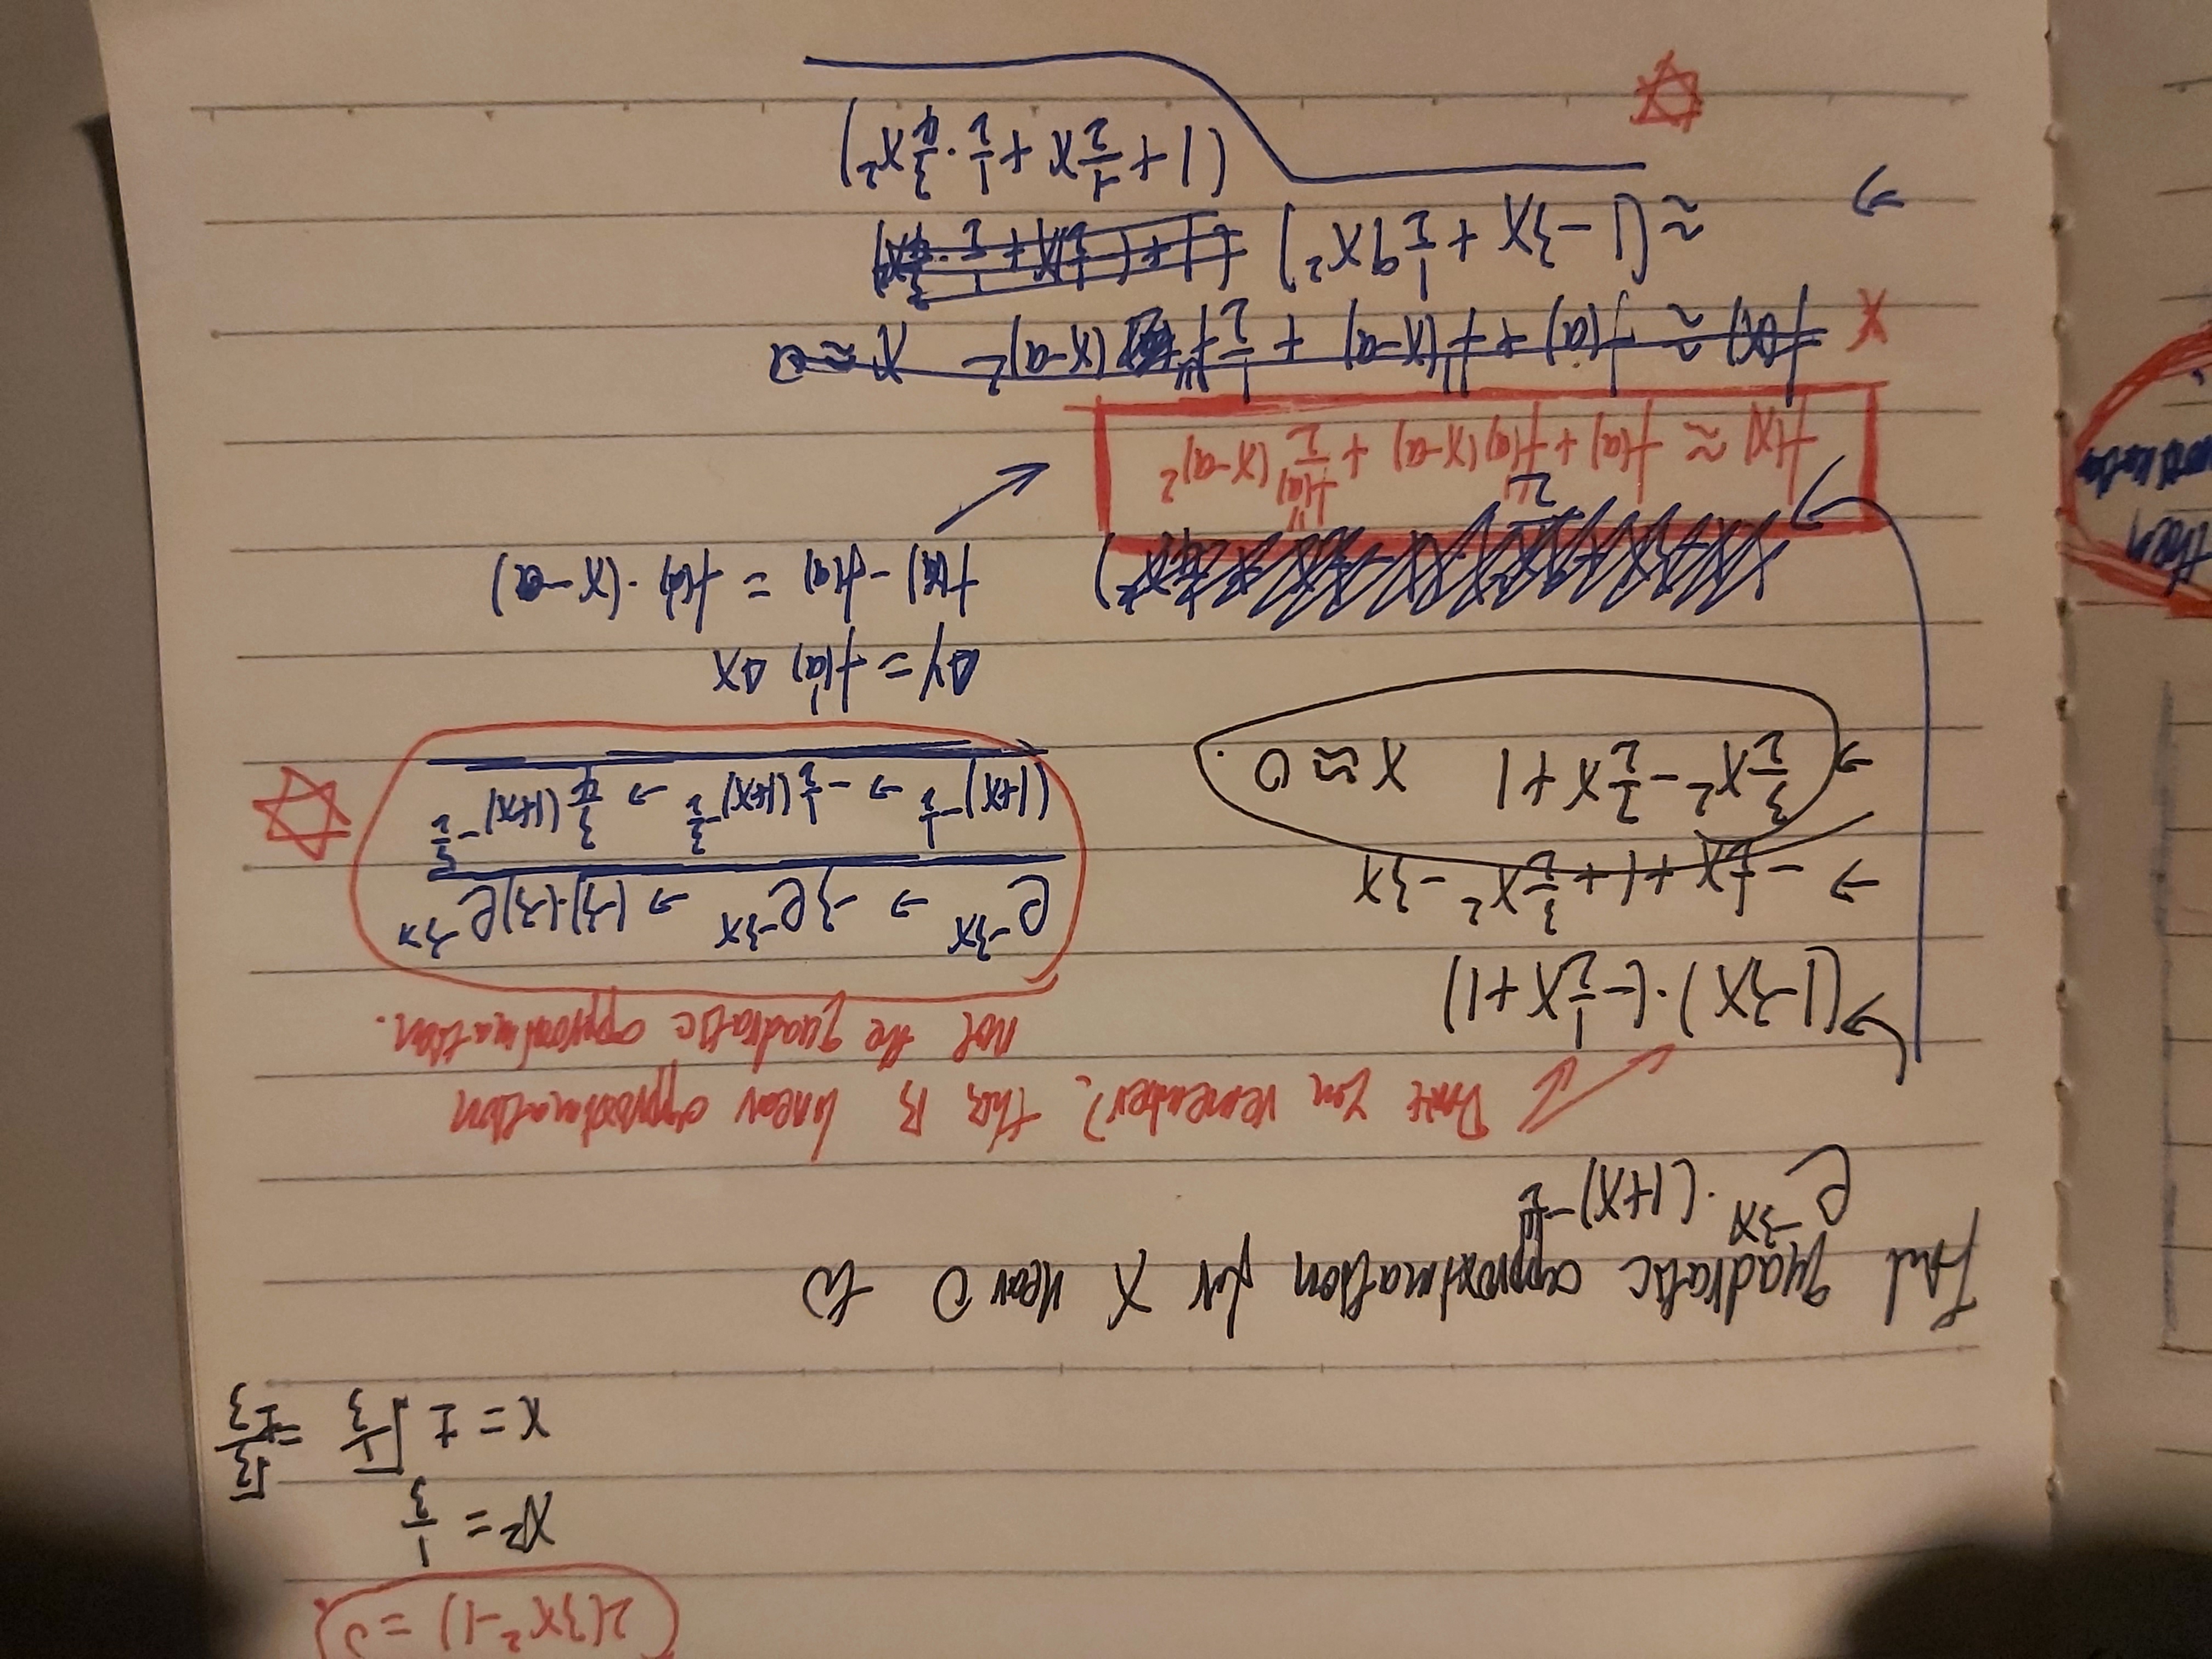 2(3x²-1) = 0.
x² = 1/3
x = ± √(1/3) = √3/±3
Find quadratic approximation for x near 0 to
e^(-3x) · (1+x)^(-1/2)
Don't you remember? this is linear approximation
not the quadratic approximation.
→ (1-3x) · (-1/2 x + 1)
→ -1/2 x + 1 + 3/2 x² - 3x
→ 3/2 x² - 7/2 x + 1 x ≈ 0.
e^(-3x) → -3e^(-3x) → (-3)·(-3)e^(-3x)
(1+x)^(-1/2) → -1/2 (1+x)^(-3/2) → 3/4 (1+x)^(-5/2)
Δy = f'(a) Δx
f(x) - f(a) = f'(a) · (x-a)
f(x) ≈ f(a) + f'(a)(x-a) + f''(a)/2 (x-a)²
x f(x) ≈ f(a) + f'(x-a) + 1/2 f'' (x-a)² x ≈ a
⇒ ≈ (1 - 3x + 1/2 9x²)
(1 + -1/2 x + 1/2 · 3/4 x²)
then